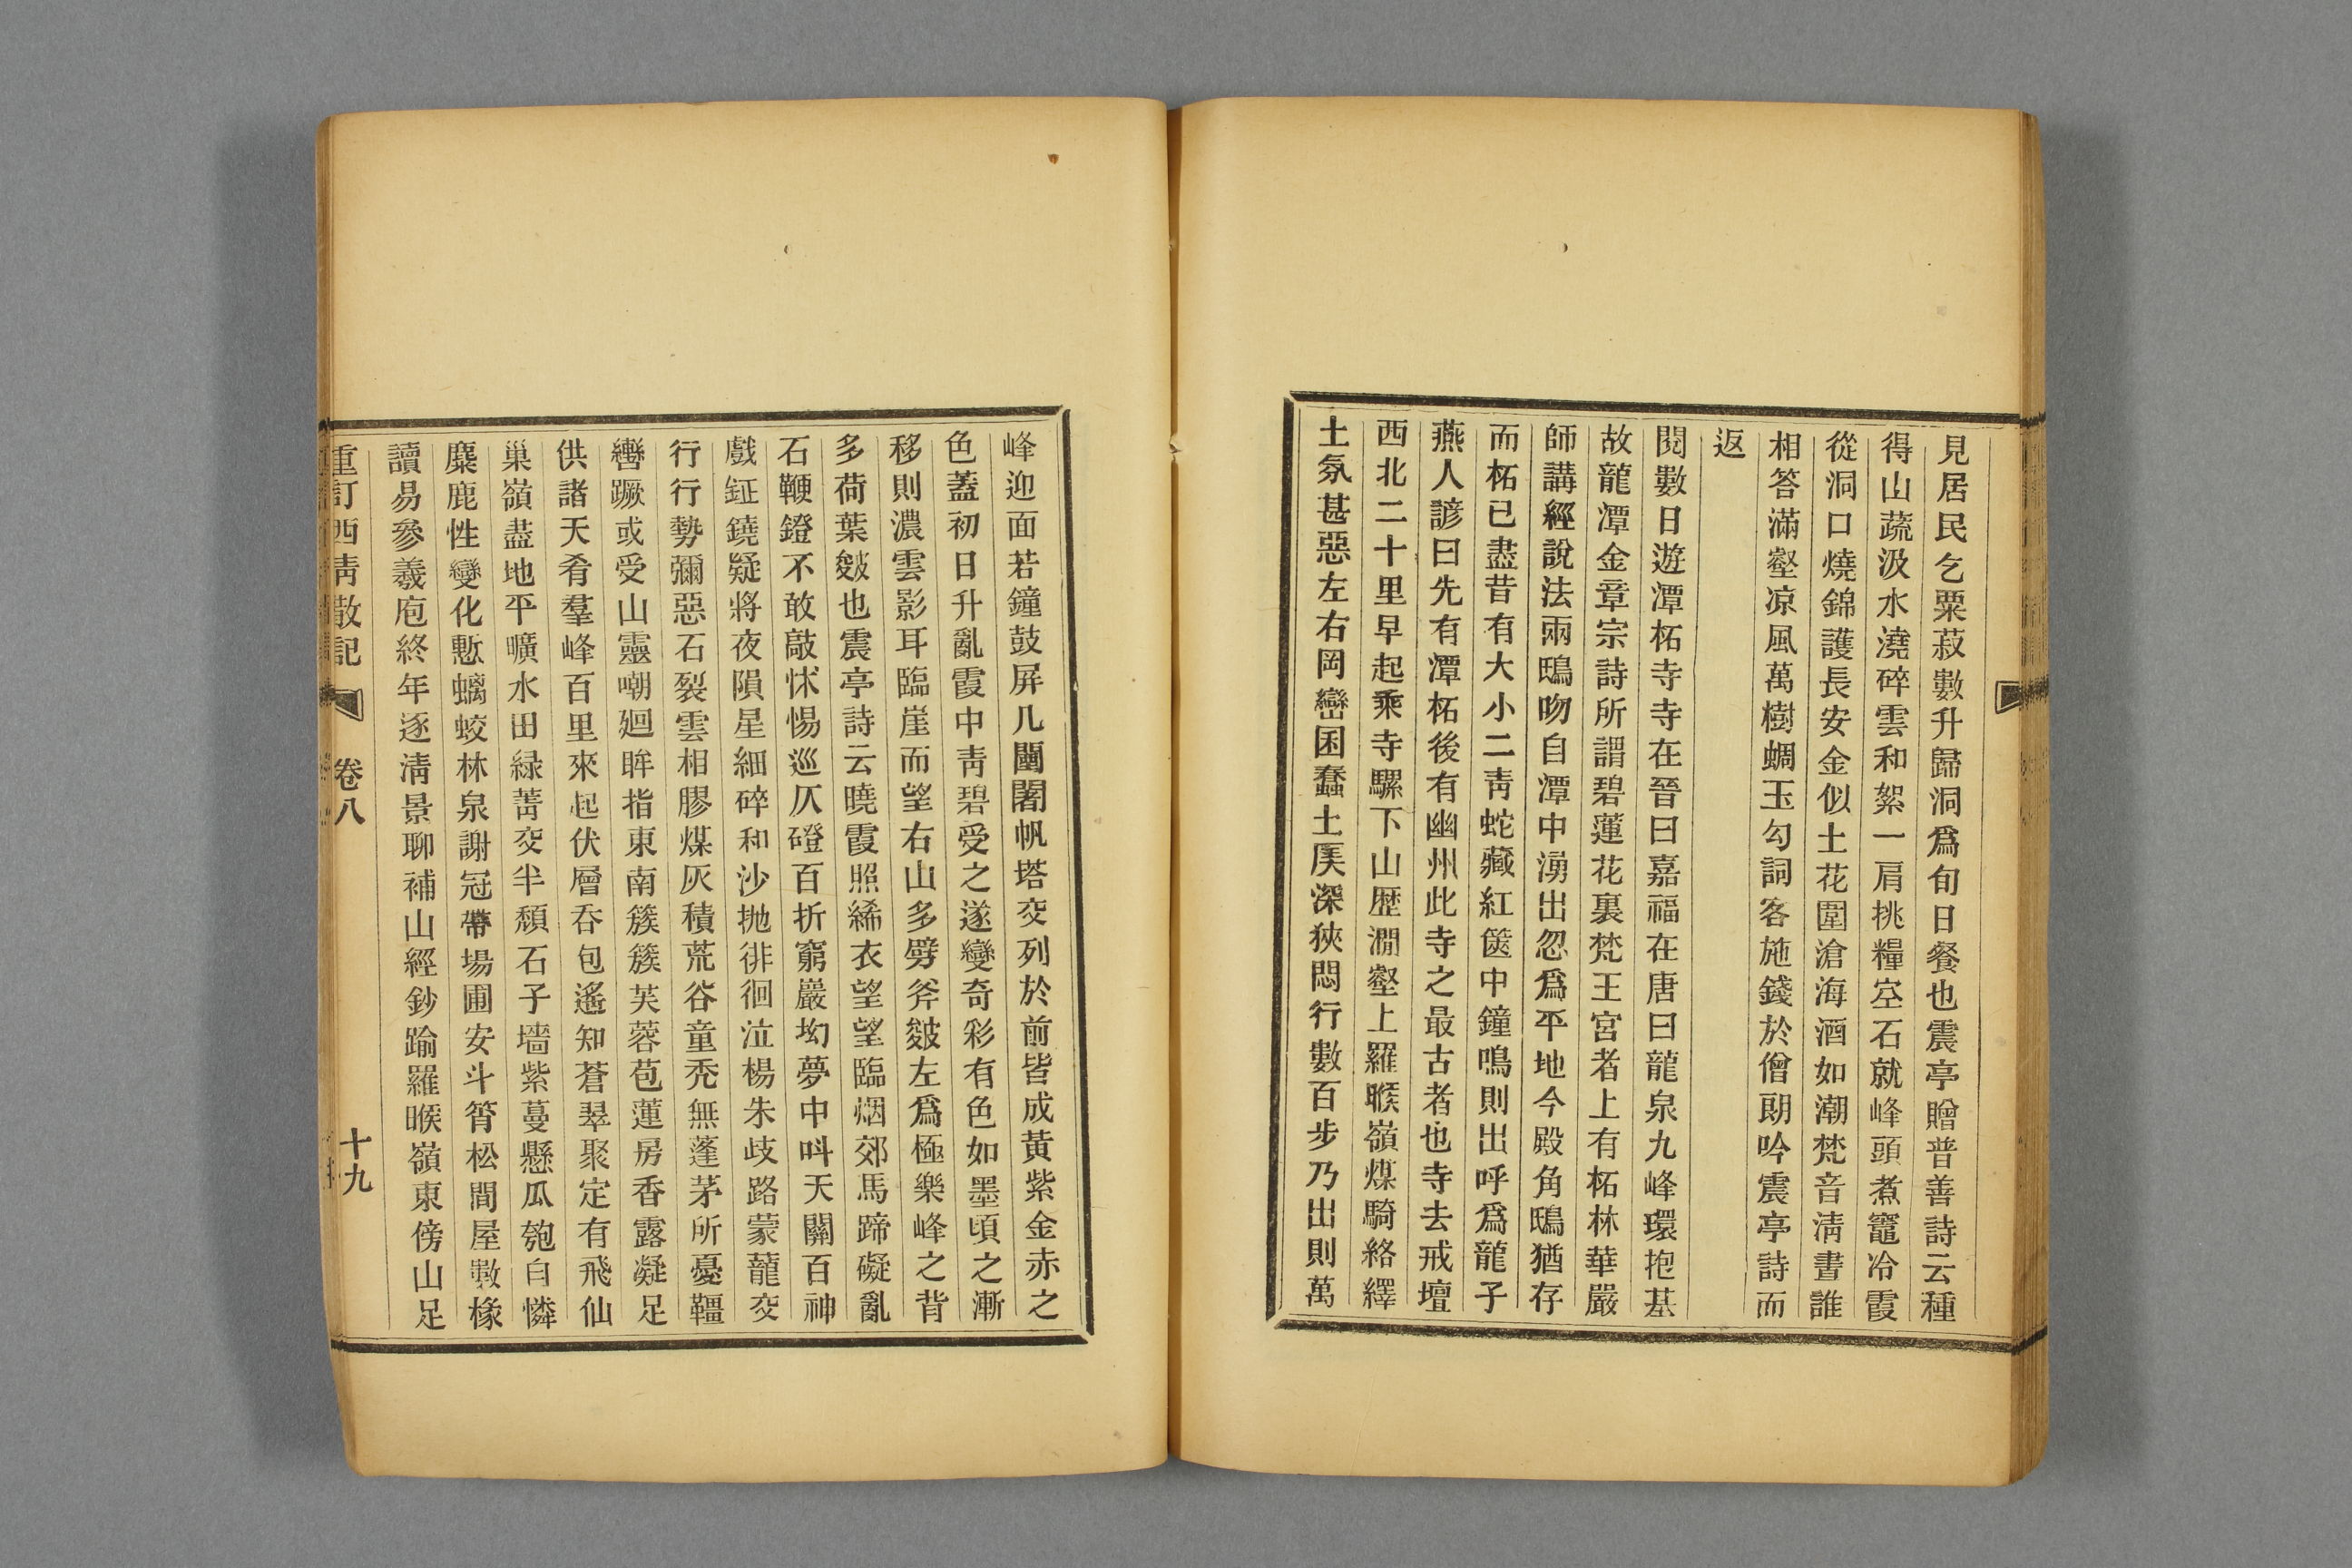 見居民乞粟菽數升歸洞爲旬日餐也震亭贈普善詩云種
得山蔬汲水澆碎雲和絮一肩挑糧空石就峰頭煮竈冷霞
從洞口燒錦護長安金似土花圍滄海酒如潮梵音淸晝誰
相答滿壑凉風萬樹蜩玉勾詞客施錢於僧朗吟震亭詩而
返
閱數日遊潭柘寺寺在晉曰嘉福在唐曰龍泉九峰環抱基
故龍潭金章宗詩所謂碧蓮花裏梵王宮者上有柘林華嚴
師講經說法兩鴟吻自潭中湧出忽爲平地今殿角鴟猶存
而柘已盡昔有大小二靑蛇藏紅篋中鐘鳴則出呼爲龍子
燕人諺曰先有潭柘後有幽州此寺之最古者也寺去戒壇
西北二十里早起乘寺騾下山歷澗壑上羅睺嶺煤騎絡繹
土氛甚惡左右岡巒囷蠢土厓深狹悶行數百步乃出則萬
峰迎面若鐘鼓屏几闉闍帆塔交列於前皆成黃紫金赤之
色蓋初日升亂霞中靑碧受之遂變奇彩有色如墨頃之漸
移則濃雲影耳臨崖而望右山多劈斧皴左爲極樂峰之背
多荷葉皴也震亭詩云曉霞照絺衣望望臨烟郊馬蹄礙亂
石鞭鐙不敢敲怵惕巡仄磴百折窮巖坳夢中呌天關百神
戲鉦鐃疑將夜隕星細碎和沙抛徘徊泣楊朱歧路蒙蘢交
行行勢彌惡石裂雲相膠煤灰積荒谷童禿無蓬茅所憂韁
轡蹶或受山靈嘲廻眸指東南簇簇芙蓉苞蓮房香露凝足
供諸天肴羣峰百里來起伏層呑包遙知蒼翠聚定有飛仙
巢嶺盡地平曠水田綠菁交半頹石子墻紫蔓懸瓜匏自憐
麋鹿性變化慙螭蛟林泉謝冠帶場圃安斗筲松間屋數椽
讀易參羲庖終年逐淸景聊補山經鈔踰羅睺嶺東傍山足
重訂西靑散記
卷八
十九